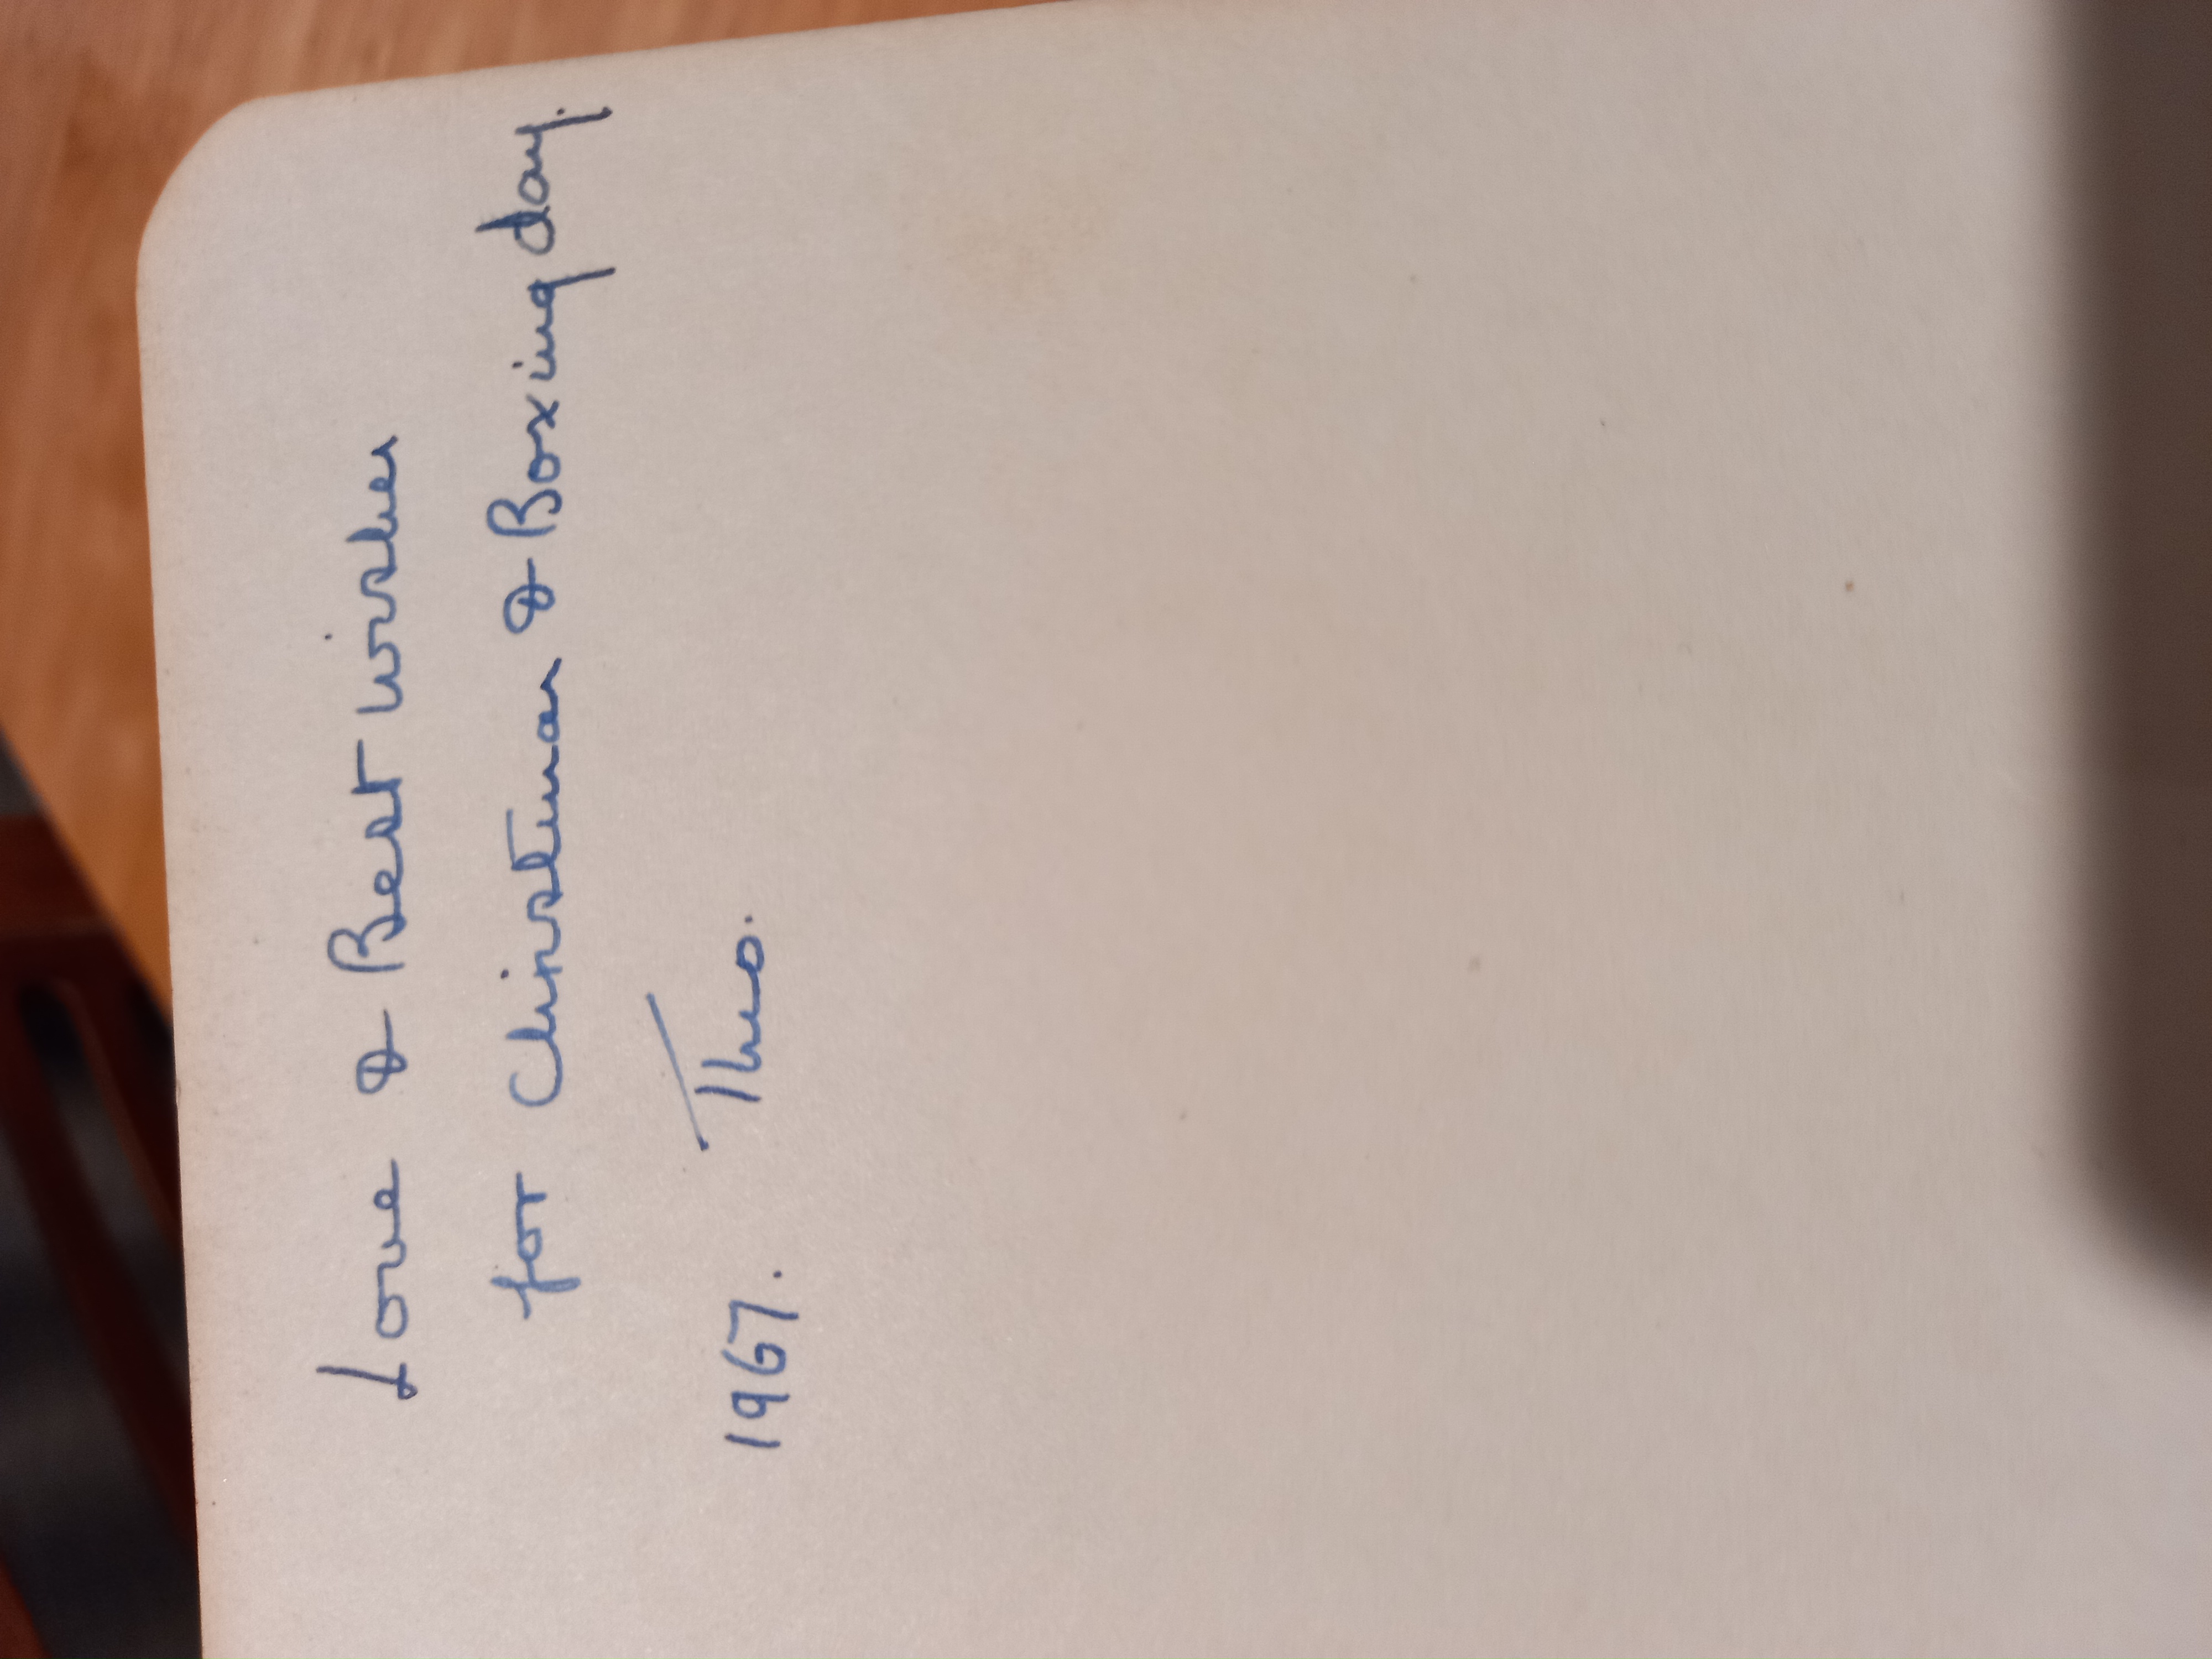 Love & Best wishes
for Christmas & Boxing day.
1967. Theo.